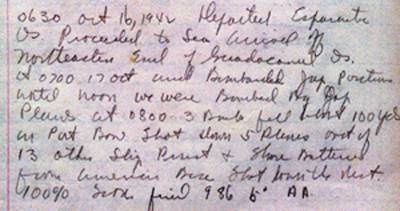 0630 Oct 16, 1942 Departed Esparanto
Is. Proceeded to Sea Arived off
Northeastern End of Guadacanal Is.
At 0700 17 Oct and Bombarded Jap Positions
until noon we were Bombed By Jap
Planes at 0800 3 Bomb fell about 100 yds
on Port Bow. Shot down 5 Planes out of
13 other Ship Present & Shore Batteries
from American Base Shot down the Rest.
100% Score fired 986 5" AA.